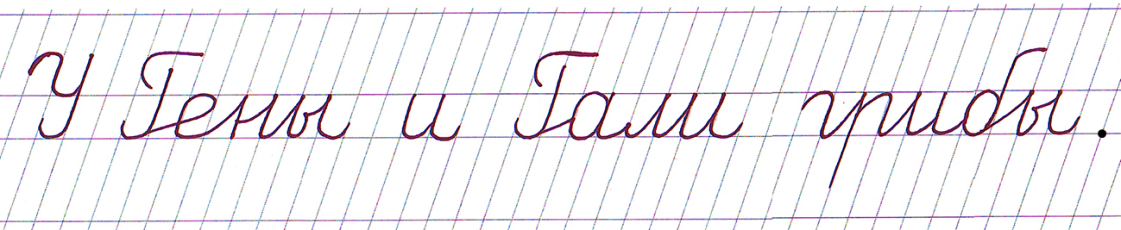 У Гены и Гали грибы.